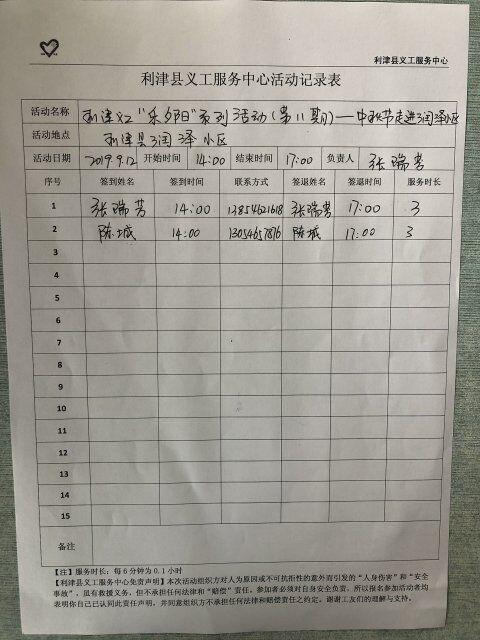 利津县义工服务中心
利津县义工服务中心活动记录表
活动名称 利津义工“乐夕阳”系列活动(第11期)——中秋节走进润泽小区
活动地点 利津县润泽小区
活动日期 2019.9.12 开始时间 14:00 结束时间 17:00 负责人 张瑞芳
序号 签到姓名 签到时间 联系方式 签退姓名 签退时间 服务时长
1 张瑞芳 14:00 13854621618 张瑞芳 17:00 3
2 陈城 14:00 13054657876 陈城 17:00 3
3
4
5
6
7
8
9
10
11
12
13
14
15
备注
【注】服务时长:每6分钟为0.1小时
【利津县义工服务中心免责声明】本次活动组织方对人为原因或不可抗拒性的意外而引发的“人身伤害”和“安全
事故”,虽有救援义务,但不承担任何法律和“赔偿”责任。参加者必须对自身安全负责,所以报名参加活动者均
表明你自己已认同此责任声明。并同意组织方不承担任何法律和赔偿责任之约定。谢谢工友们的理解与支持。